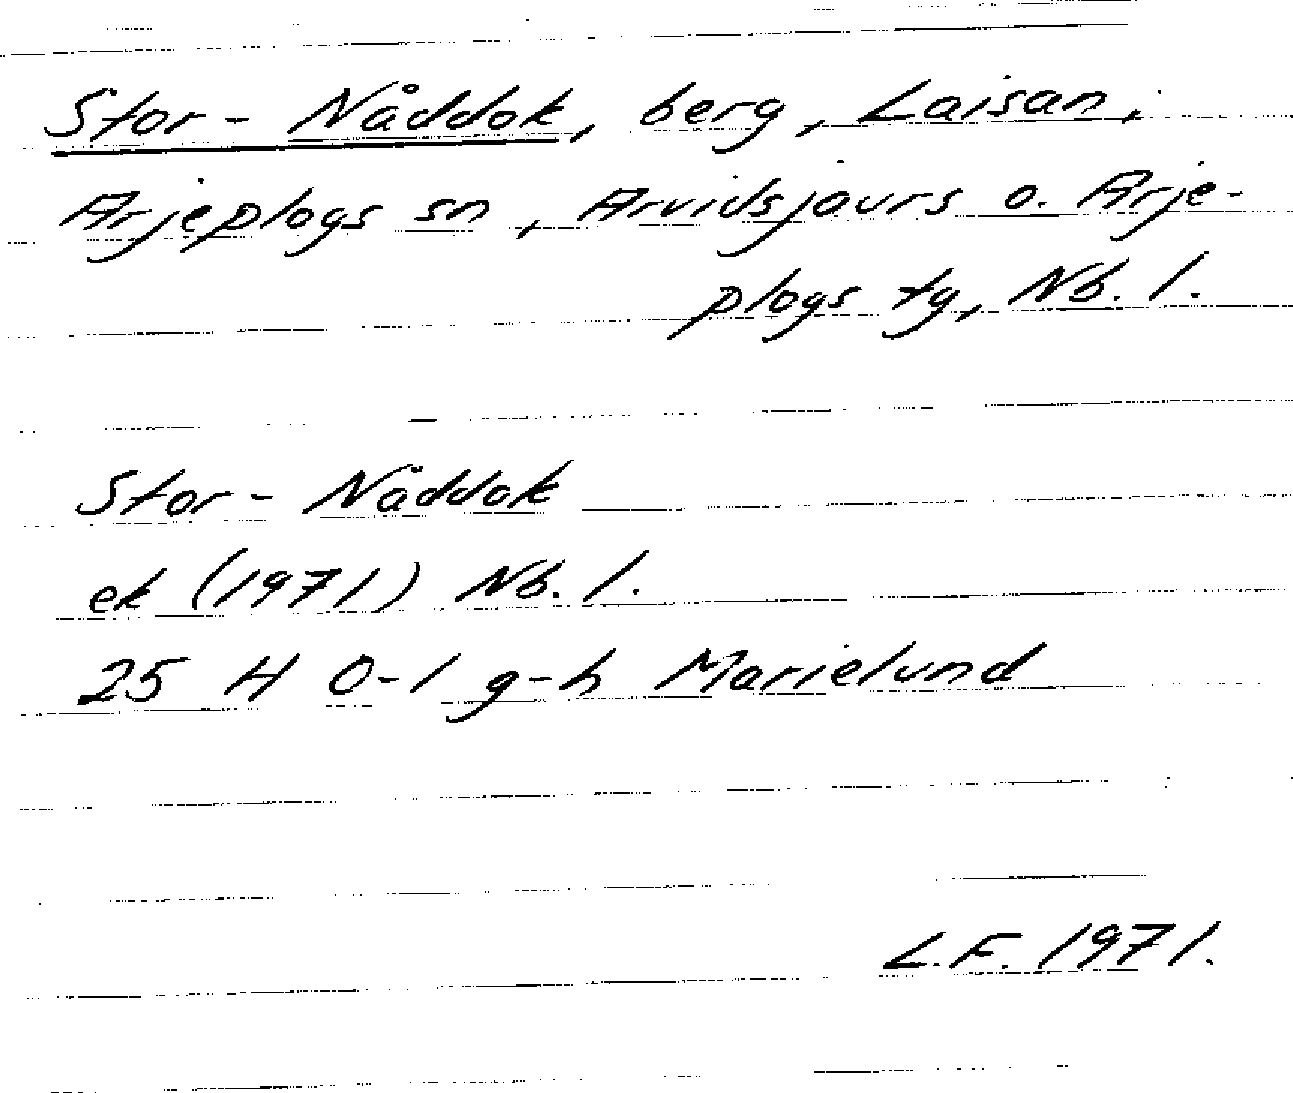 Stor-Nåddok, berg, Laisan,
Arjeplogs sn, Arvidsjaurs o. Arje-
plogs tg, Nb. l.
Stor-Nåddok
ek (1971) Nb. l.
25 H 0-1 g-h Marielund
L.F. 1971.